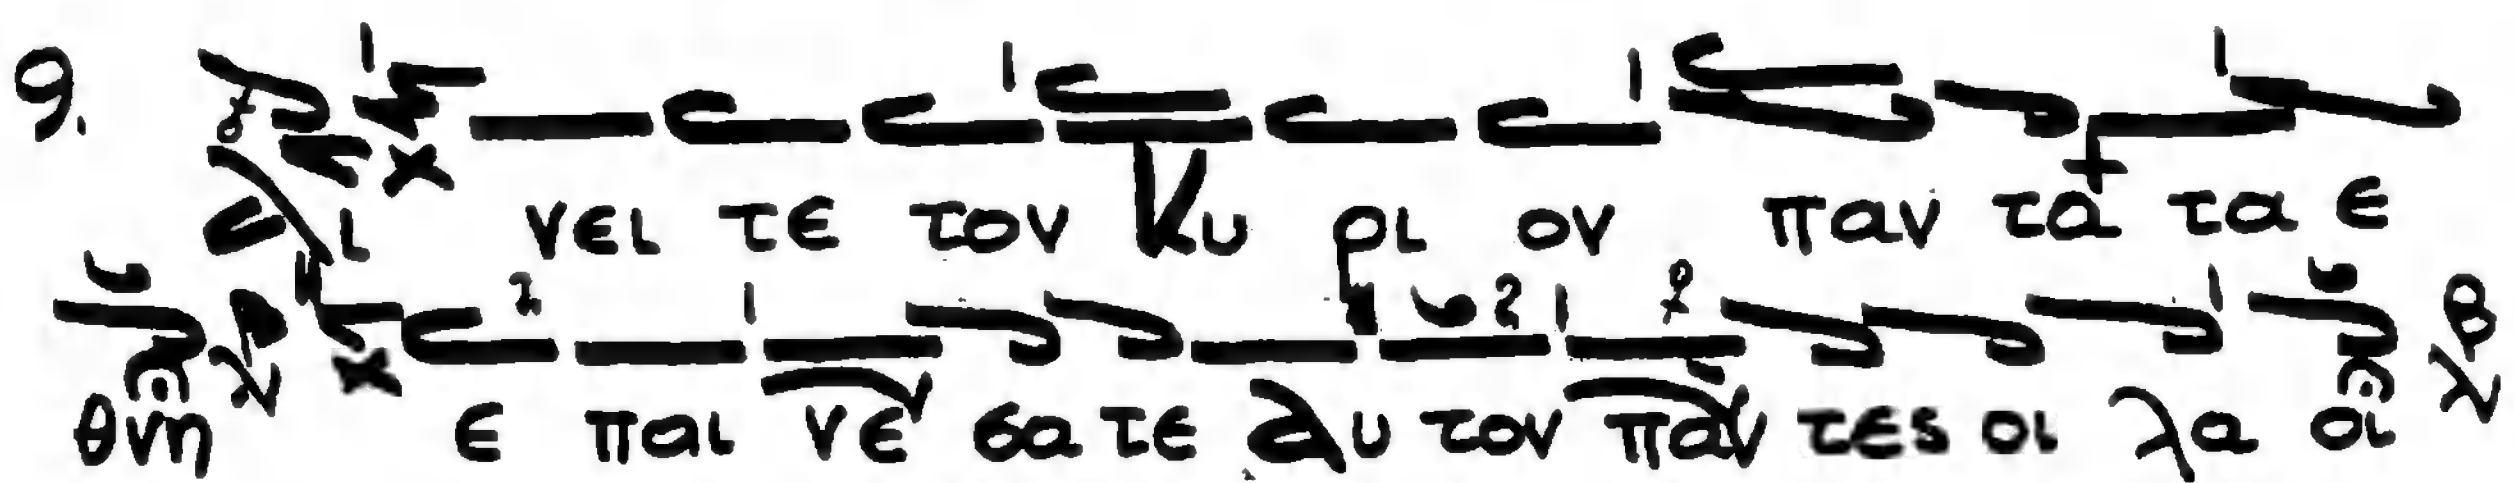 9. αι νει τε τον Κυ ρι ον παν τα τα ε
θνη ε παι νε σα τε αυ τον παν τες οι λα οι